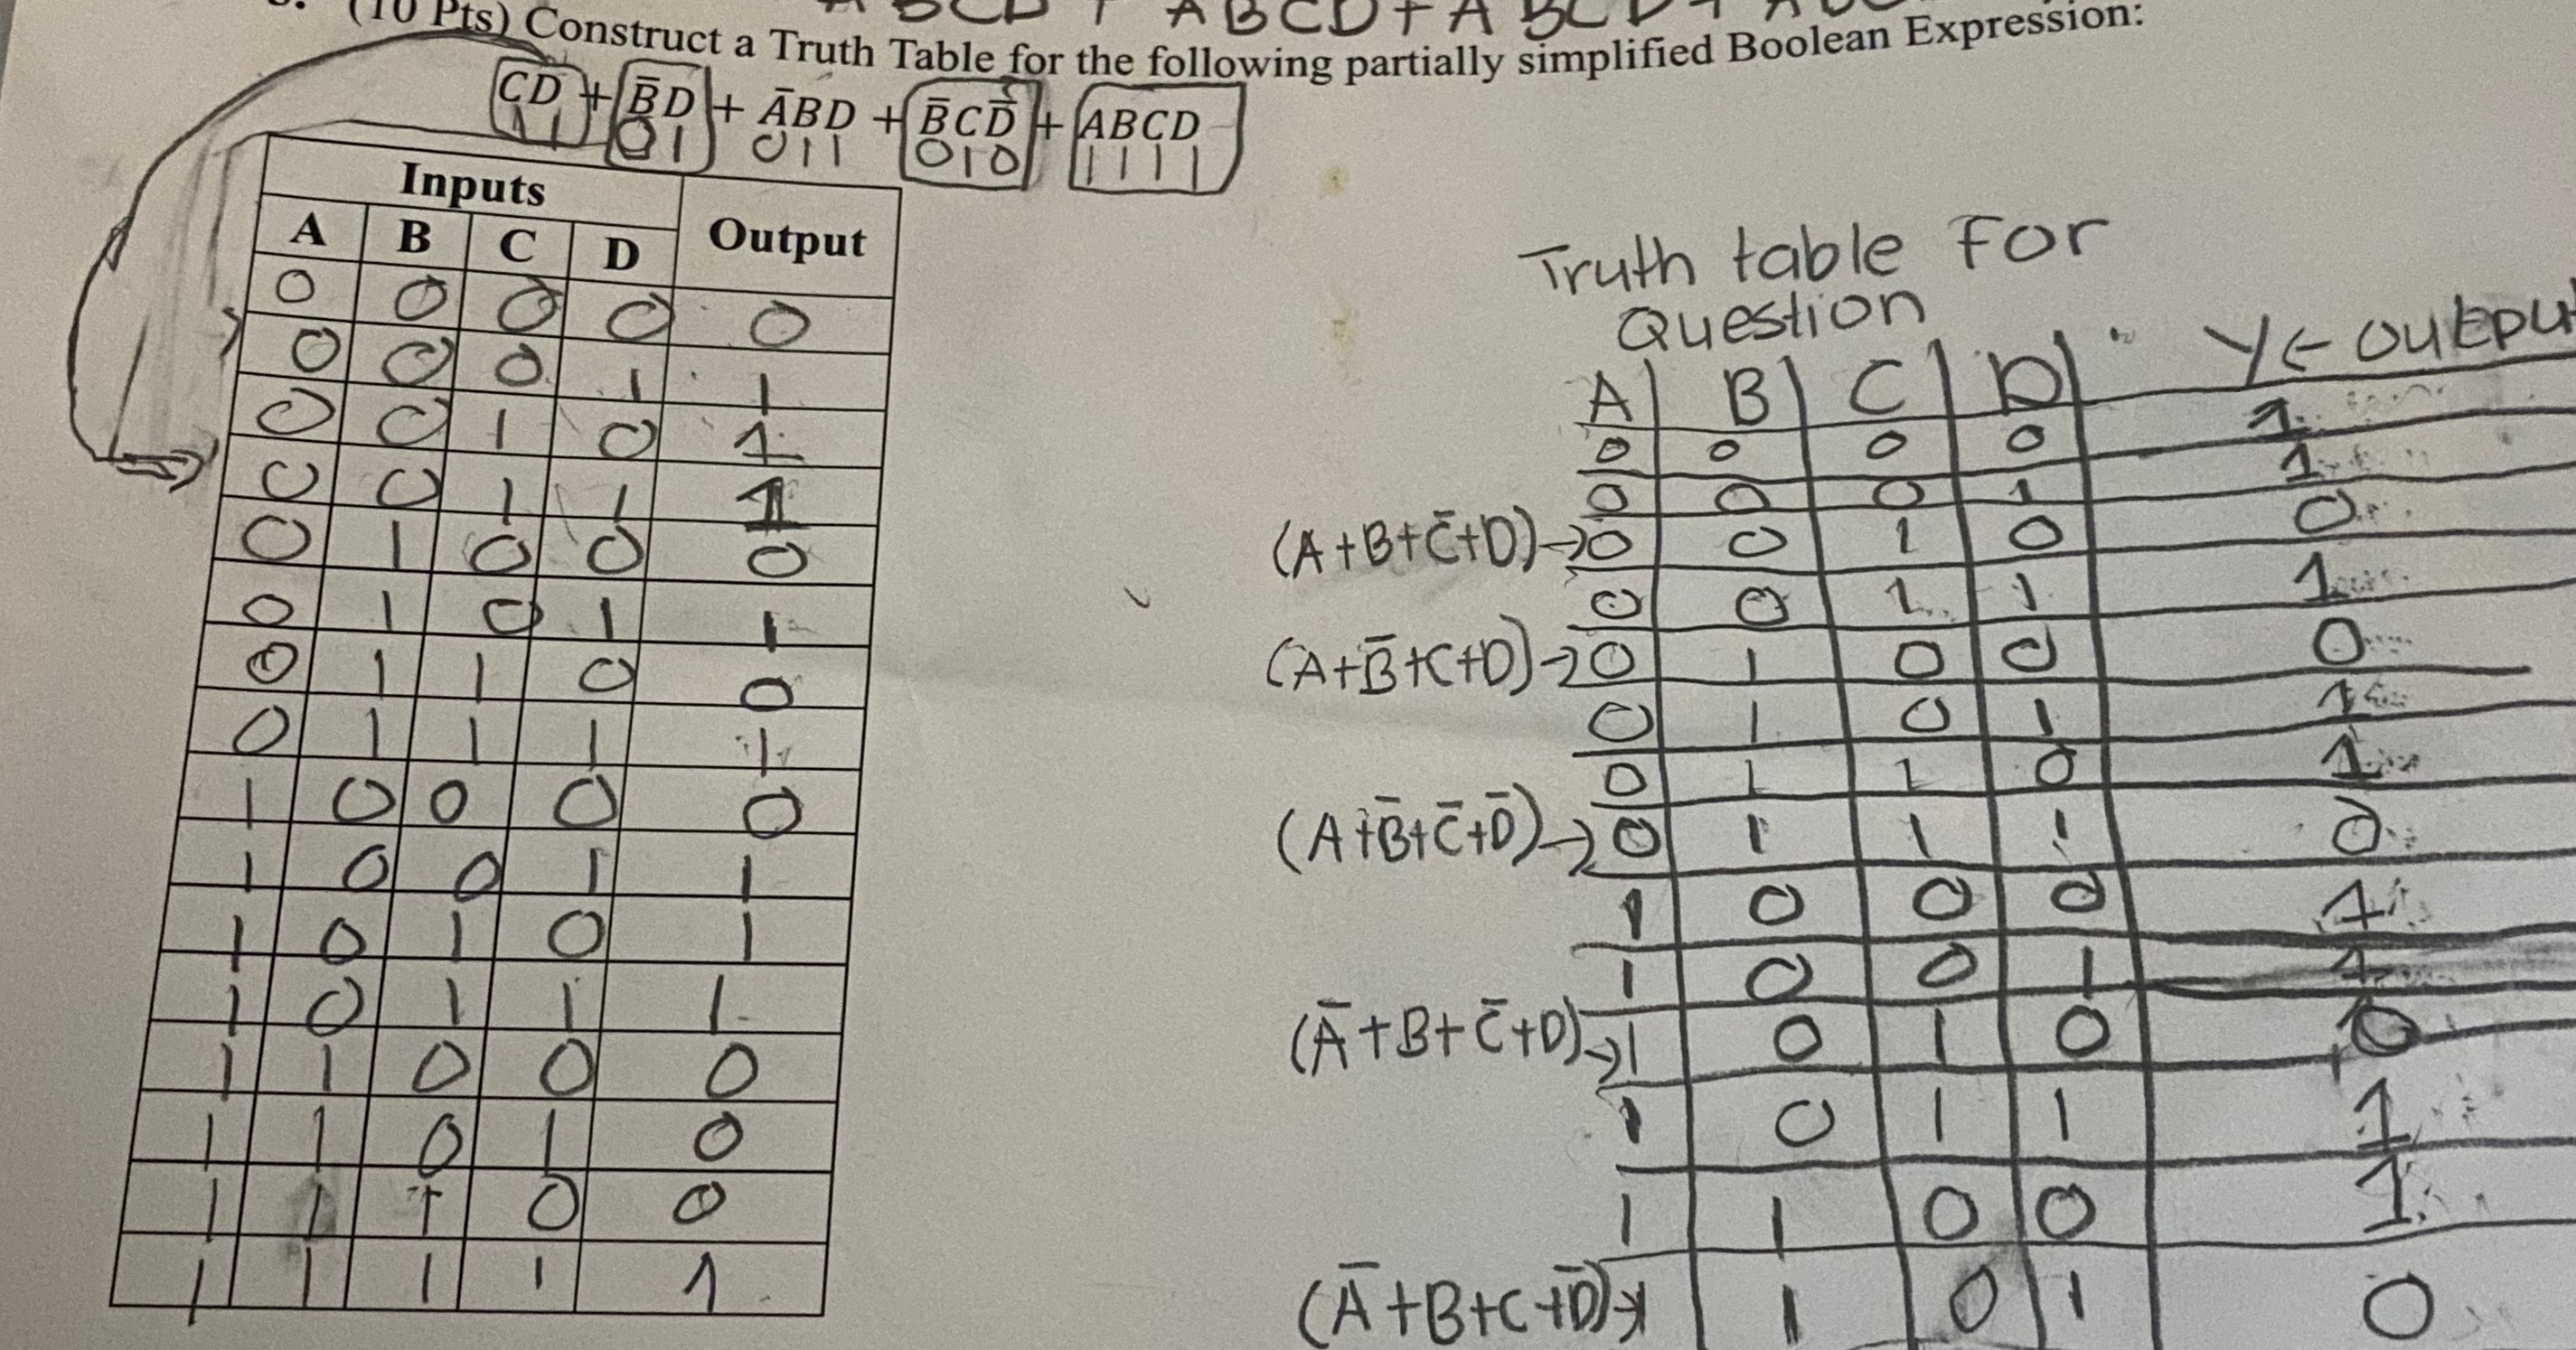 (10 Pts) Construct a Truth Table for the following partially simplified Boolean Expression:
CD + B̅D + A̅BD + B̅CD̅ + ABCD
11 01 011 010 1111
Inputs Output
A B C D
0 0 0 0 0
0 0 0 1 1
0 0 1 0 1
0 0 1 1 1
0 1 0 0 0
0 1 0 1 1
0 1 1 0 0
0 1 1 1 1
1 0 0 0 0
1 0 0 1 1
1 0 1 0 1
1 0 1 1 1
1 1 0 0 0
1 1 0 1 0
1 1 1 0 0
1 1 1 1 1
Truth table For
Question
A B C D Y ← output
0 0 0 0 1
0 0 0 1 1
(A+B+C̅+D)→ 0 0 1 0 0
0 0 1 1 1
(A+B̅+C+D)→ 0 1 0 0 0
0 1 0 1 1
0 1 1 0 1
(A+B̅+C̅+D̅)→ 0 1 1 1 0
1 0 0 0 1
1 0 0 1 1
(A̅+B+C̅+D)→ 1 0 1 0 0
1 0 1 1 1
1 1 0 0 1
(A̅+B+C+D̅)→ 1 1 0 1 0